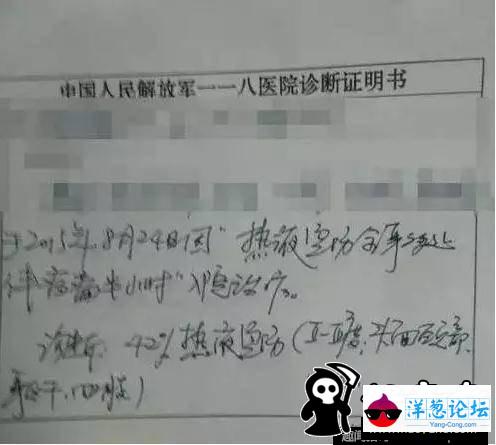 中国人民解放军一一八医院诊断证明书
于2015年8月24日因"热液烫伤全身多处
伴疼痛半小时"入院治疗。
诊断: 42%热液烫伤(II-III度,头面颈部,
躯干,四肢)
洋葱论坛
Yang-Cong.com